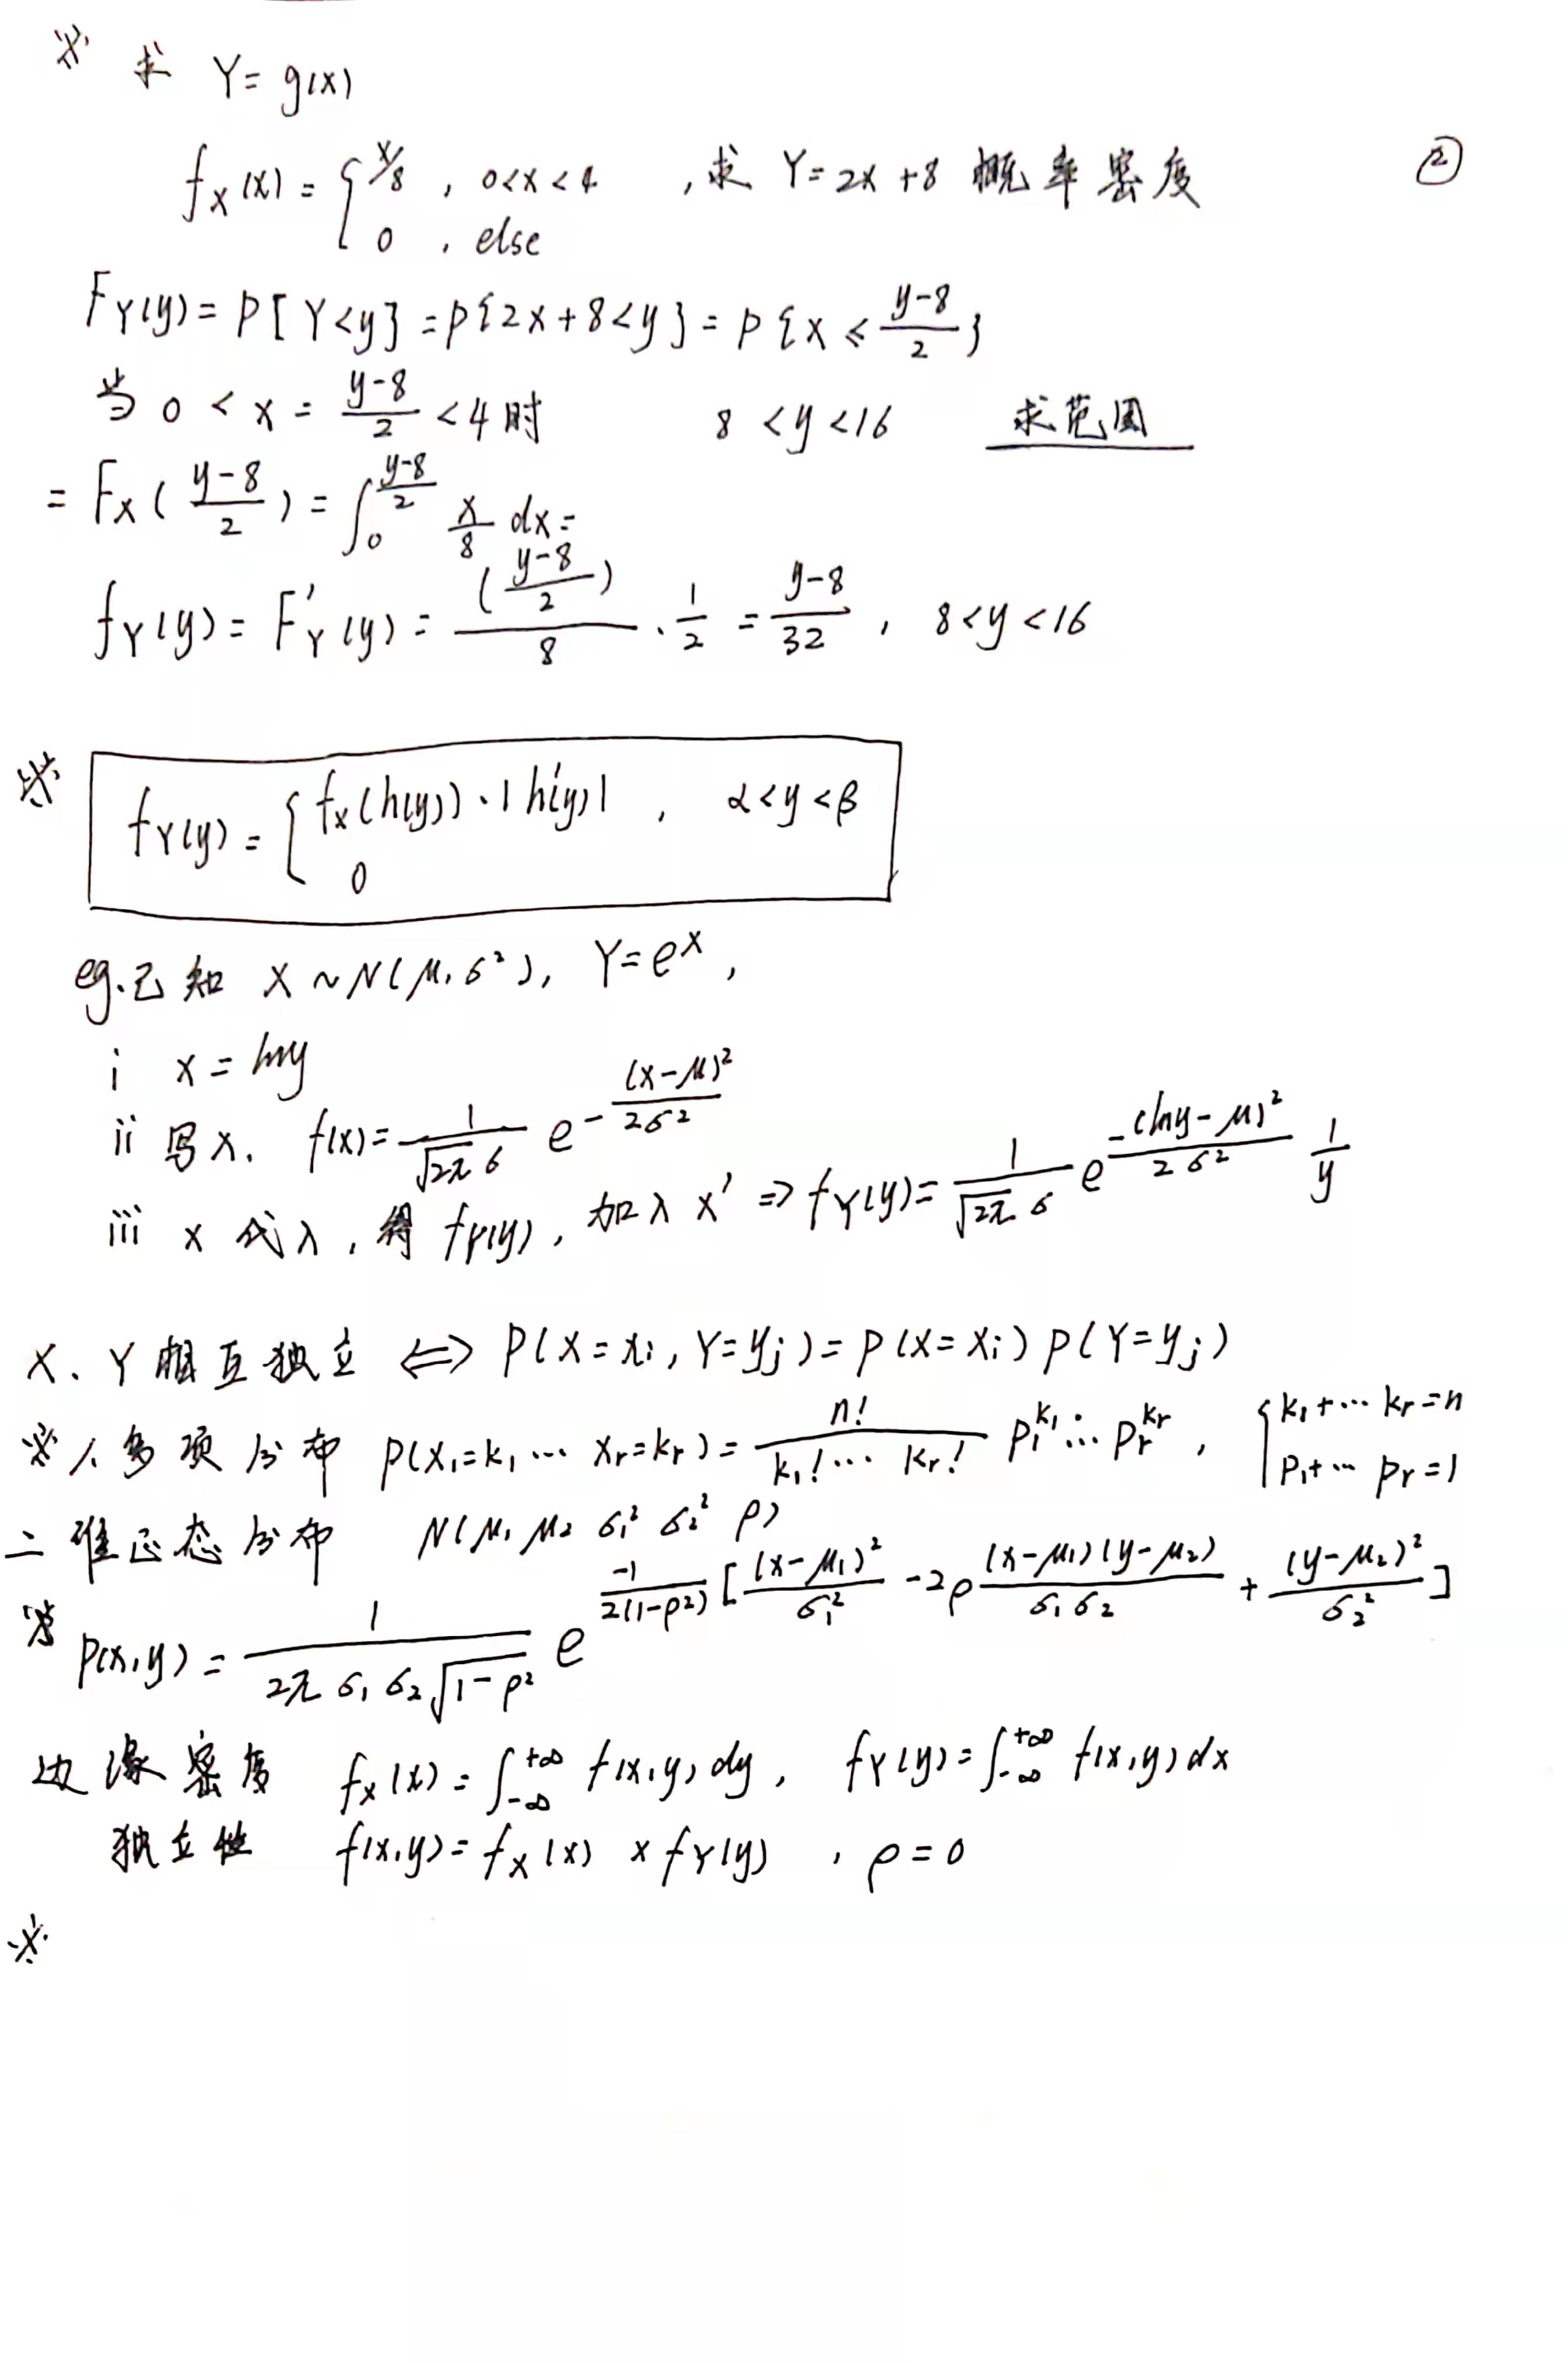 ※ 求 Y=g(x)
f_X(x) = { x/8 , 0<x<4 ,求 Y=2x+8 概率密度 ②
0 , else
F_Y(y) = P[Y<y} = P{2x+8<y} = P{x ≤ (y-8)/2}
当 0 < x = (y-8)/2 < 4 时 8 < y < 16 求范围
= F_X((y-8)/2) = ∫_0^{(y-8)/2} x/8 dx =
f_Y(y) = F'_Y(y) = ((y-8)/2)/8 · 1/2 = (y-8)/32 , 8<y<16
※ f_Y(y) = { f_X(h(y))·|h'(y)| , α<y<β
0
eg.已知 X~N(μ,σ²), Y=e^X,
i x = lny
ii 写x. f(x) = 1/(√2π σ) e^{-(x-μ)²/2σ²}
iii x 代入,得 f_Y(y), 加入 x' ⇒ f_Y(y) = 1/(√2π σ) e^{-(lny-μ)²/2σ²} 1/y
X、Y相互独立 ⟺ P(X=x_i, Y=y_j) = P(X=x_i) P(Y=y_j)
※ 多项分布 P(X_1=k_1 ⋯ X_r=k_r) = n!/(k_1!⋯ k_r!) P_1^{k_1} ⋯ P_r^{k_r} , { k_1+⋯ k_r=n
P_1+⋯ P_r=1
二维正态分布 N(μ_1 μ_2 σ_1² σ_2² ρ)
※ P(x,y) = 1/(2π σ_1 σ_2 √(1-ρ²)) e^{-1/(2(1-ρ²)) [(x-μ_1)²/σ_1² -2ρ (x-μ_1)(y-μ_2)/(σ_1σ_2) + (y-μ_2)²/σ_2²]}
边缘密度 f_X(x) = ∫_{-∞}^{+∞} f(x,y) dy , f_Y(y) = ∫_{-∞}^{+∞} f(x,y) dx
独立性 f(x,y) = f_X(x) × f_Y(y) , ρ=0
※